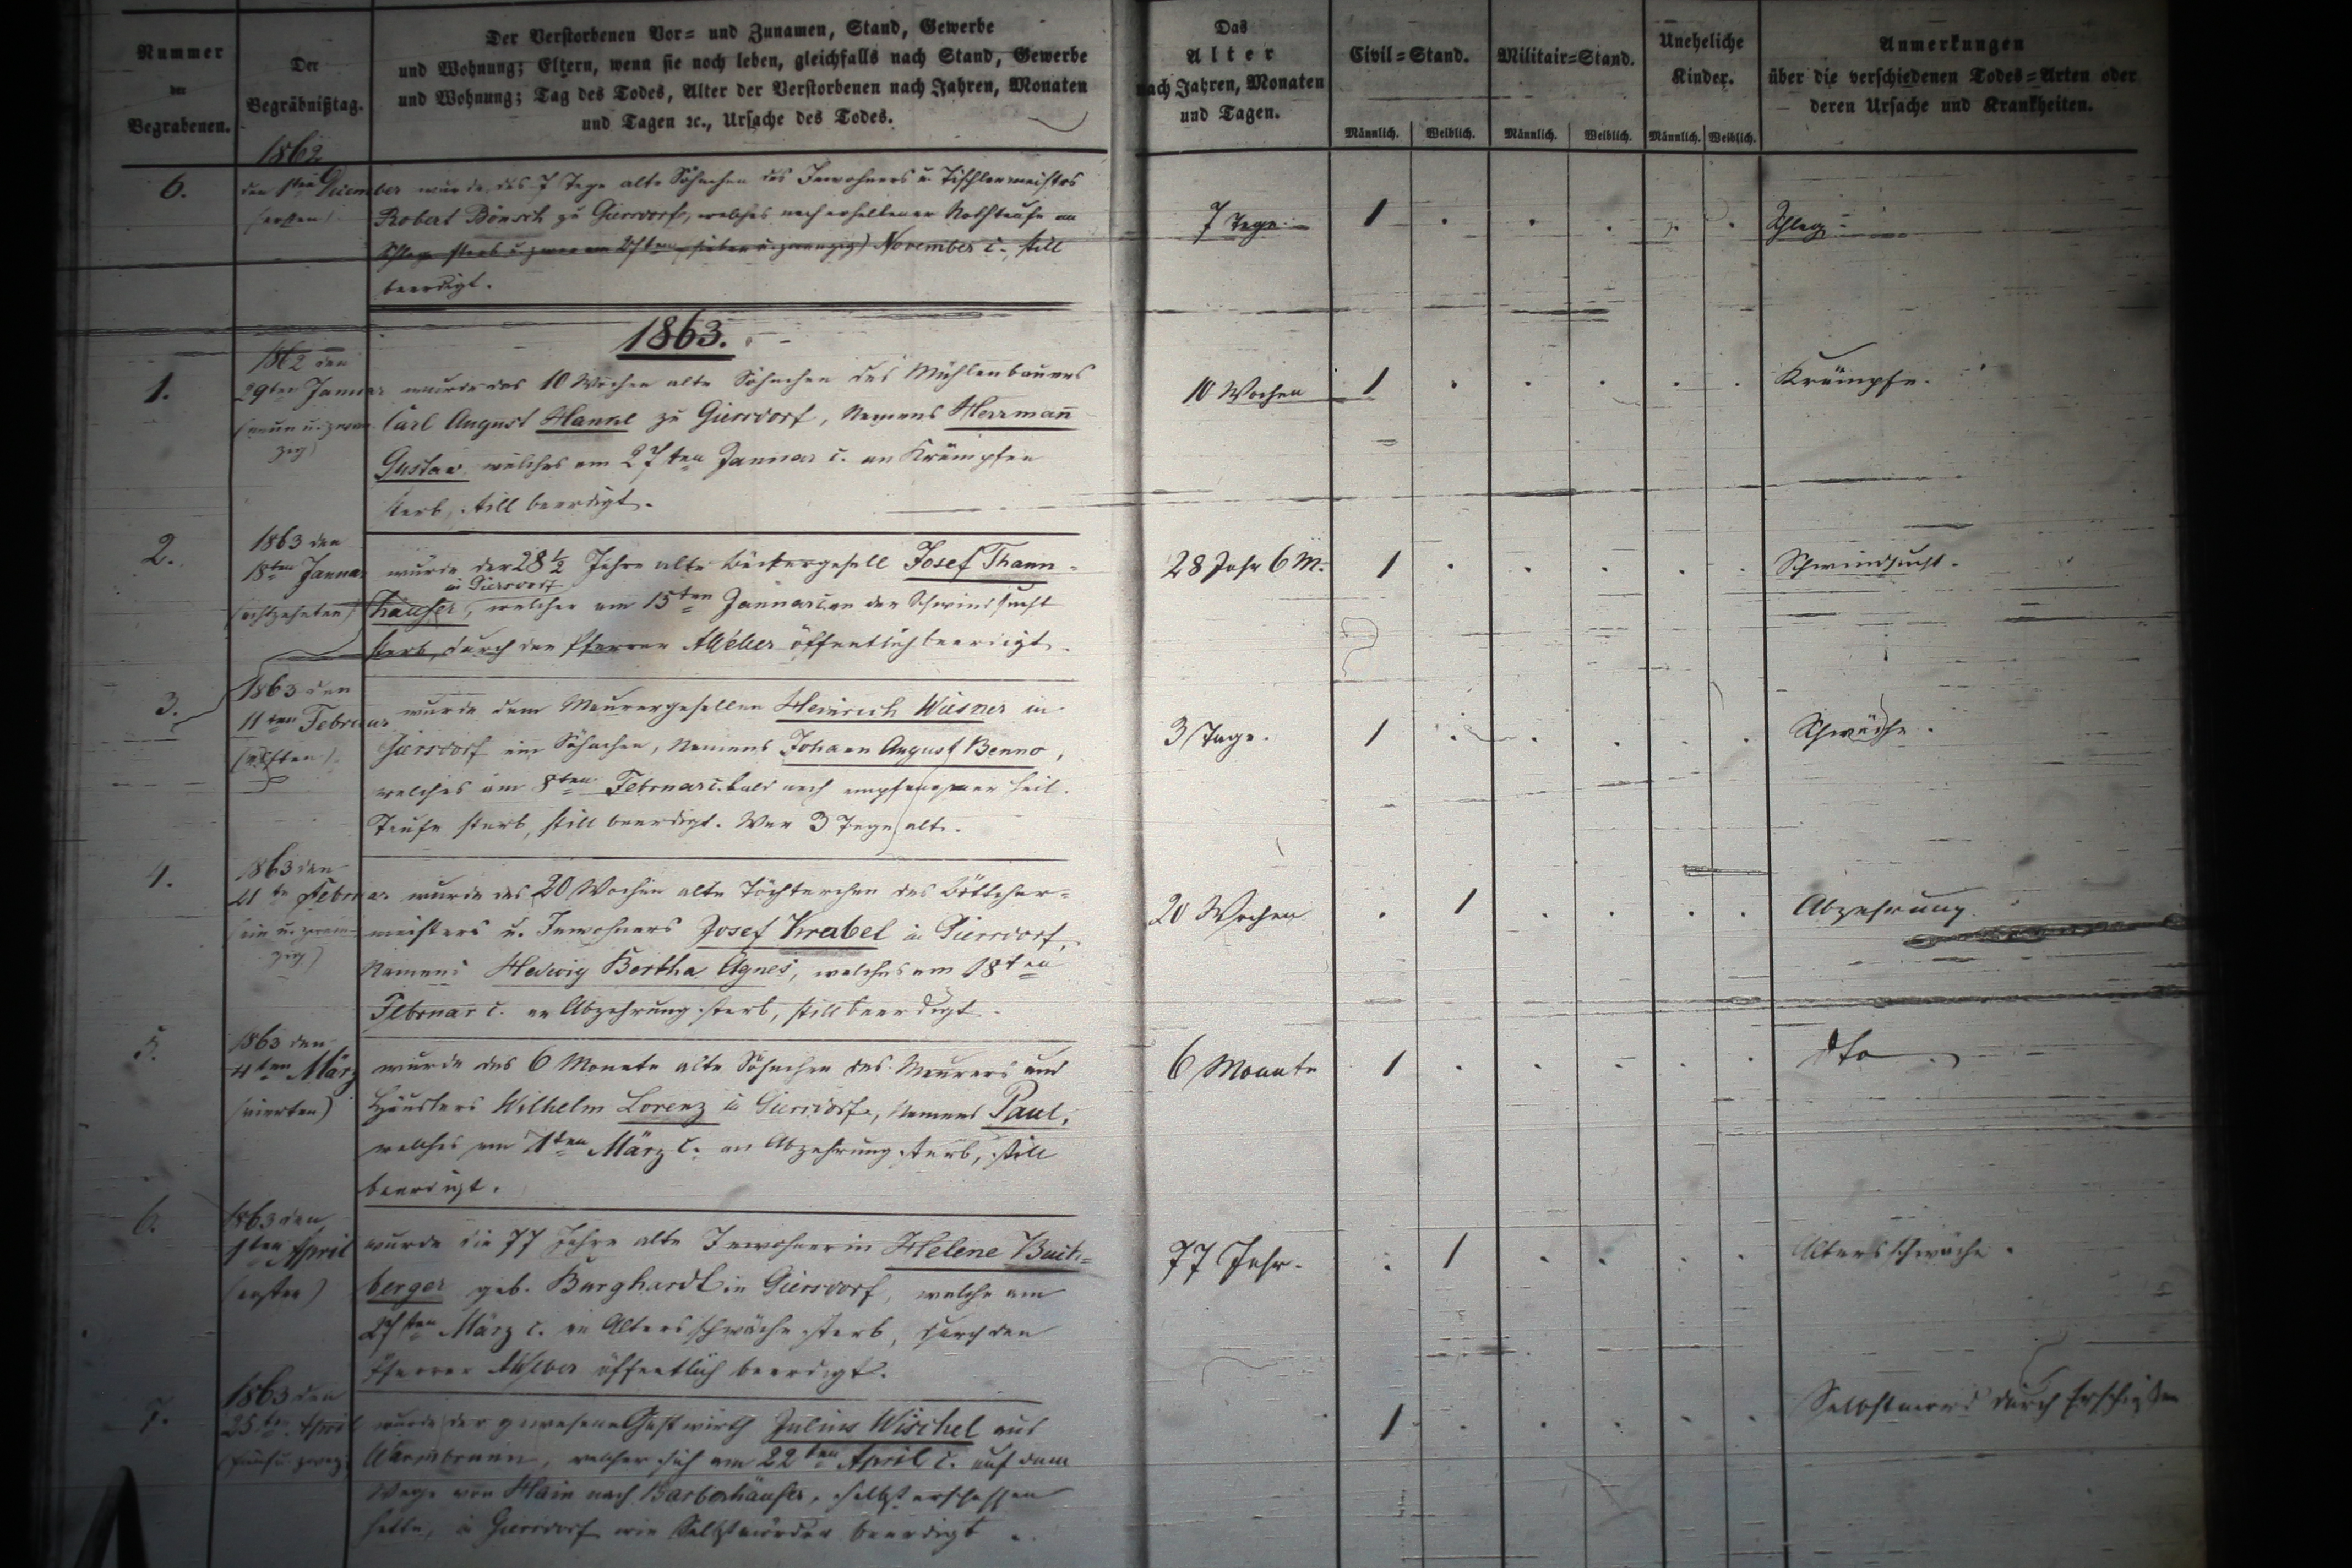 Nummer
der
Begrabenen.
Der
Begräbnißtag.
Der Verstorbenen Vor= und Zunamen, Stand, Gewerbe
und Wohnung; Eltern, wenn sie noch leben, gleichfalls nach Stand, Gewerbe
und Wohnung; Tag des Todes, Alter der Verstorbenen nach Jahren, Monaten
und Tagen ꝛc., Ursache des Todes.
Das
Alter
nach Jahren, Monaten
und Tagen.
Civil=Stand.
Männlich. Weiblich.
Militair=Stand.
Männlich. Weiblich.
Uneheliche
Kinder.
Männlich. Weiblich.
Anmerkungen
über die verschiedenen Todes=Arten oder
deren Ursache und Krankheiten.
1862
6.
den 1sten Dezember wurde das 7 Tage alte Söhnchen des Inwohners u. Tischlermeisters
(ersten)
Robert Bönsch zu Giersdorf, welches nach erhaltener Nothtaufe an
Schlage starb u. zwar am 27ten (sieben u. zwanzig) November c., still
beerdigt.
7 Tage
1
Schlag
1863.
1.
1862 den
29ten Januar
(neun u. zwan
zig)
wurde das 10 Wochen alte Söhnchen des Mühlenbauers
Carl August Hankl zu Giersdorf, Namens Herrmann̄
Gustav welches am 27ten Januar c. an Krämpfen
starb, still beerdigt.
10 Wochen
1
Krämpfe.
2.
1863 den
18ten Januar
(achtzehnten)
wurde der 28 1/2 Jahre alte Bäckergesell Josef Thann=
in Giersdorf
häuser, welcher am 15ten Januar c. an der Schwindsucht
starb, durch den Pfarrer öffentlich beerdigt.
28 Jahr 6 M.
1
Schwindsucht.
3.
1863 den
11ten Februar
(elften)
wurde dem Maurergesellen Heinrich Wiesner in
Giersdorf ein Söhnchen, Namens Johann August Benno,
welches am 8ten Februar c. bald nach empfangener heil.
Taufe starb, still beerdigt. War 3 Tage alt.
3 Tage.
1
Schwäche.
4.
1863 den
21te Februar
(ein u. zwan
zig)
wurde das 20 Wochen alte Töchterchen des Böttcher=
meisters u. Inwohners Josef Krabel in Giersdorf,
Namens Hedwig Bertha Agnes, welches am 18ten
Februar c. an Abzehrung starb, still beerdigt.
20 Wochen
1
Abzehrung.
5.
1863 den
4ten März
(vierten)
wurde das 6 Monate alte Söhnchen des Maurers und
Häuslers Wilhelm Lorenz in Giersdorf, Namens Paul,
welches am 1ten März c. an Abzehrung starb, still
beerdigt.
6 Monate
1
dto
6.
1863 den
1ten April
(ersten)
wurde die 77 Jahre alte Inwohnerin Helene Buch=
berger geb. Burghardt in Giersdorf, welche am
März c. an Altersschwäche starb, durch den
Pfarrer öffentlich beerdigt.
77 Jahr.
1
Altersschwäche.
7.
1863 den
25ten April
(fünf u. zwanz
wurde der gewesene Gastwirth Julius Wischel aus
Warmbrunn, welcher sich am 22ten April c. auf dem
Wege von Hain nach Baberhäuser, selbst erschossen
hatte, in Giersdorf wie Selbstmörder beerdigt.
1
Selbstmord durch Erschießen